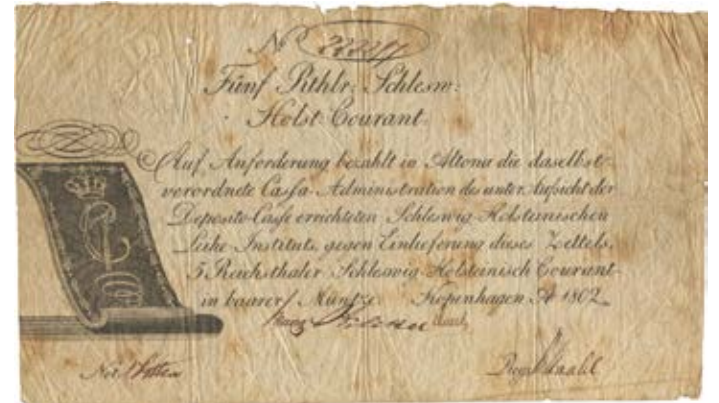 No
Fünf Rthlr: Schlesw:
Holst Courant.
Auf Anforderung bezahlt in Altona die daselbst
verordnete Cassa-Administration des unter Aufsicht der
Deposito-Casse errichteten Schleswig-Holsteinischen
Leihe-Instituts, gegen Einlieferung dieses Zettels,
5 Reichsthaler Schleswig-Holsteinisch Courant
in baarer Müntze. Kopenhagen Ao 1802